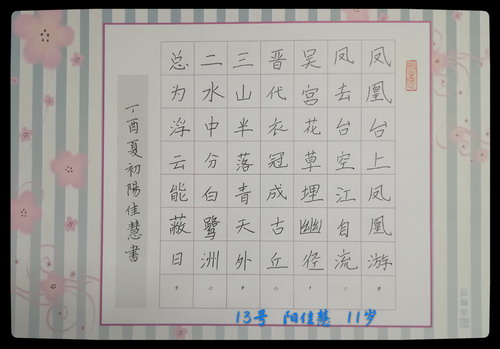 凤凰台上凤凰游
凤去台空江自流
吴宫花草埋幽径
晋代衣冠成古丘
三山半落青天外
二水中分白鹭洲
总为浮云能蔽日
丁酉夏初陽佳慧書
13号 阳佳慧 11岁